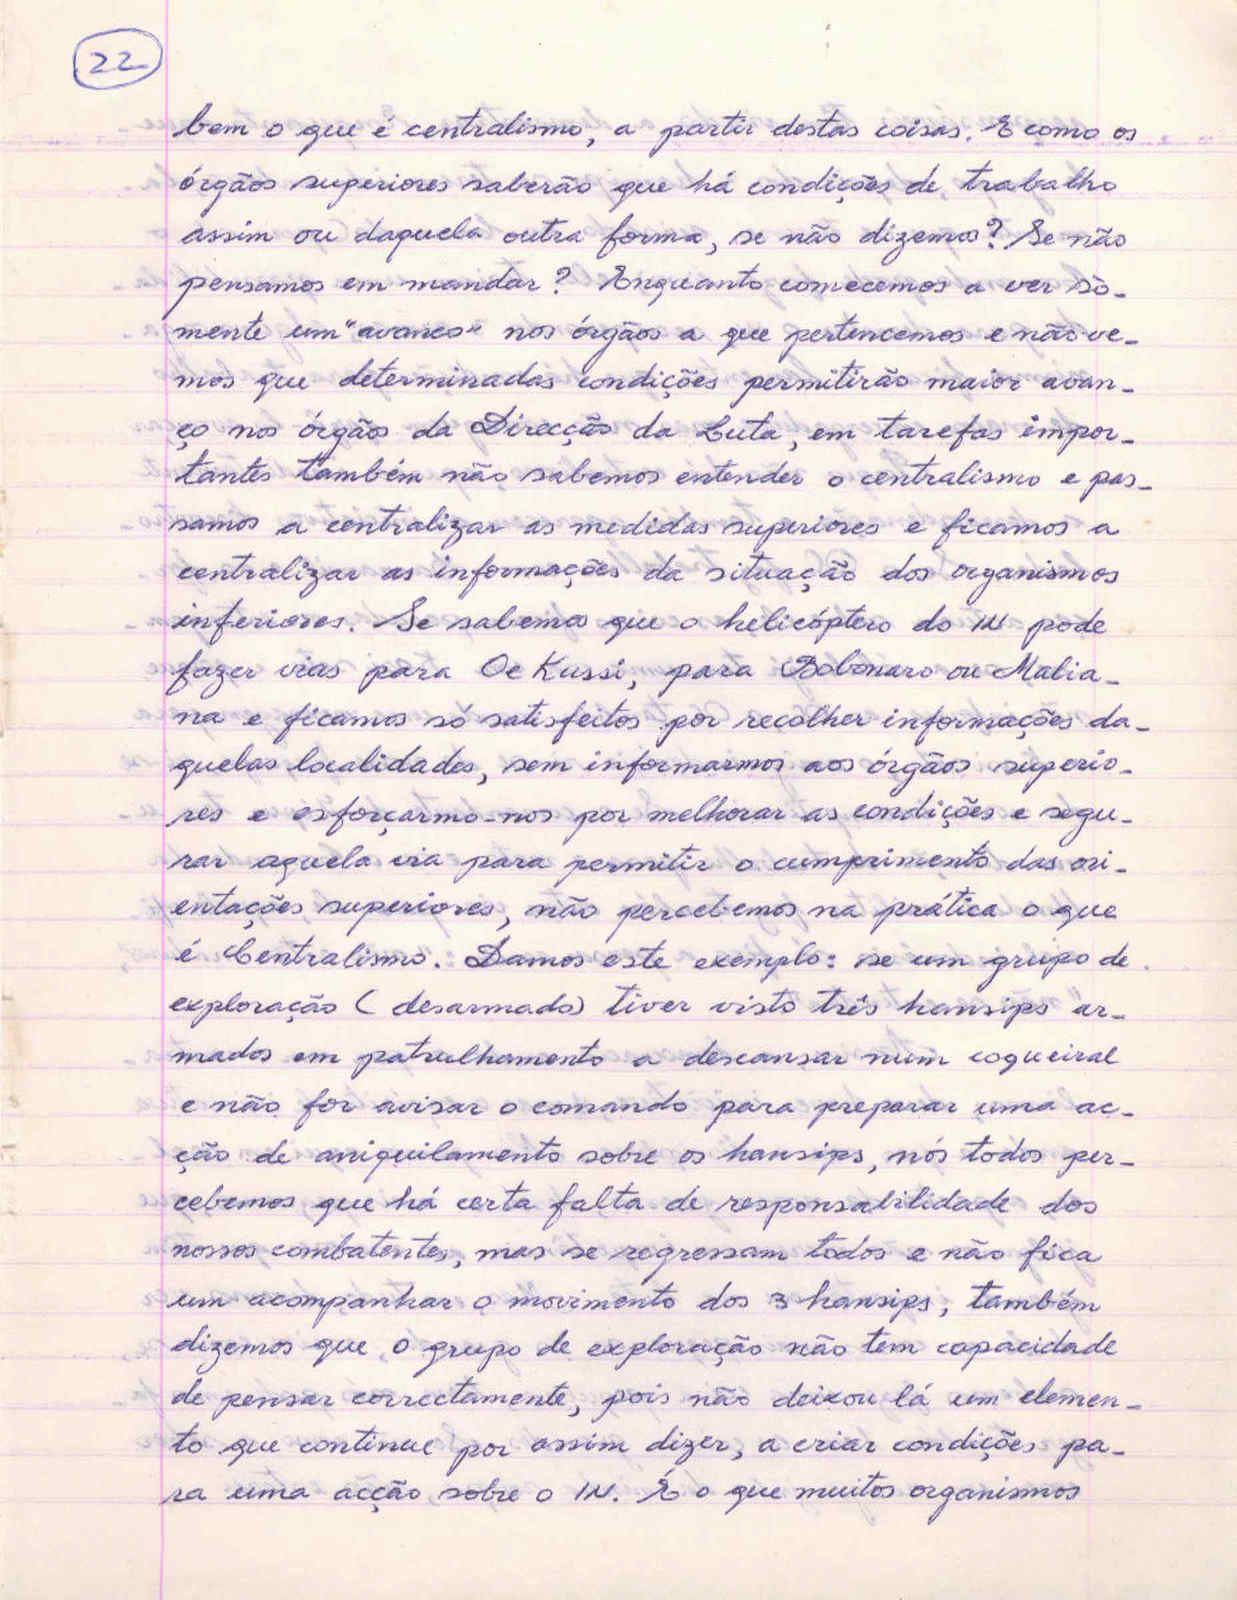 22
bem o que é centralismo, a partir destas coisas. E como os
órgãos superiores saberão que há condições de trabalho
assim ou daquela outra forma, se não dizemos? Se não
pensamos em mandar? Enquanto comecemos a ver sò-
mente um "avanco" nos órgãos a que pertencemos e não ve-
mos que determinadas condições permitirão maior avan-
ço nos órgãos da Direcção da Luta, em tarefas impor-
tantes também não sabemos entender o centralismo e pas-
samos a centralizar as medidas superiores e ficamos a
centralizar as informações da situação dos organismos
inferiores. Se sabemos que o helicóptero do IN pode
fazer vias para Oe Kussi, para Bobonaro ou Malia-
na e ficamos só satisfeitos por recolher informações da-
quelas localidades, sem informarmos aos órgãos superio-
res e esforçarmo-nos por melhorar as condições e segu-
rar aquela via para permitir o cumprimento das ori-
entações superiores, não percebemos na prática o que
é Centralismo. Damos este exemplo: se um grupo de
exploração (desarmado) tiver visto três hansips ar-
mados em patrulhamento a descansar num coqueiral
e não for avisar o comando para preparar uma ac-
ção de aniquilamento sobre os hansips, nós todos per-
cebemos que há certa falta de responsabilidade dos
nossos combatentes, mas se regressam todos e não fica
um acompanhar o movimento dos 3 hansips, também
dizemos que o grupo de exploração não tem capacidade
de pensar correctamente, pois não deixou lá um elemen-
to que continue por assim dizer, a criar condições pa-
ra uma acção sobre o IN. É o que muitos organismos